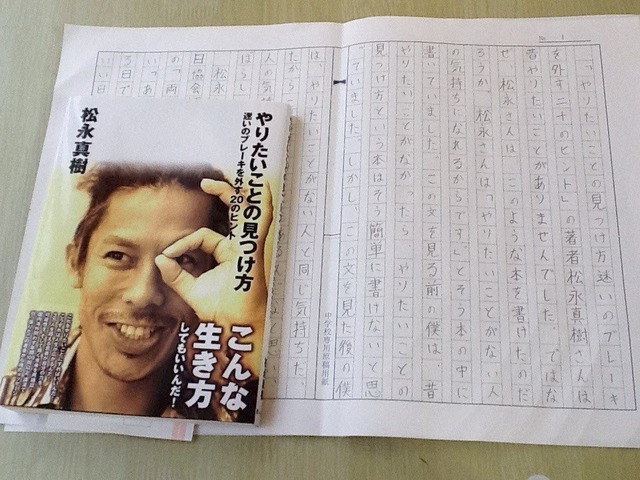 No. 1
「やりたいことの見つけ方迷いのブレーキ
を外す二十のヒント」の著者松永真樹さんは
昔やりたいことがありませんでした。ではな
ぜ、松永さんは、このような本を書けたのだ
ろうか。松永さんは「やりたいことがない人
の気持ちになれるからです。」とそう本の中に
書いていました。この文を見る前の僕は、昔
やりたいことがなか やりたいことの
見つけ方という本はそう簡単に書けないと思
っていました。しかし、この文を見た後の僕
中学校専用原稿用紙
は、やりたいことがない人と同じ気持ちだ
たから
人の気
松永
の「両
る日で
いい日
やりたいことの見つけ方
迷いのブレーキを外す20のヒント
松永真樹
こんな
生き方
してもいいんだ!